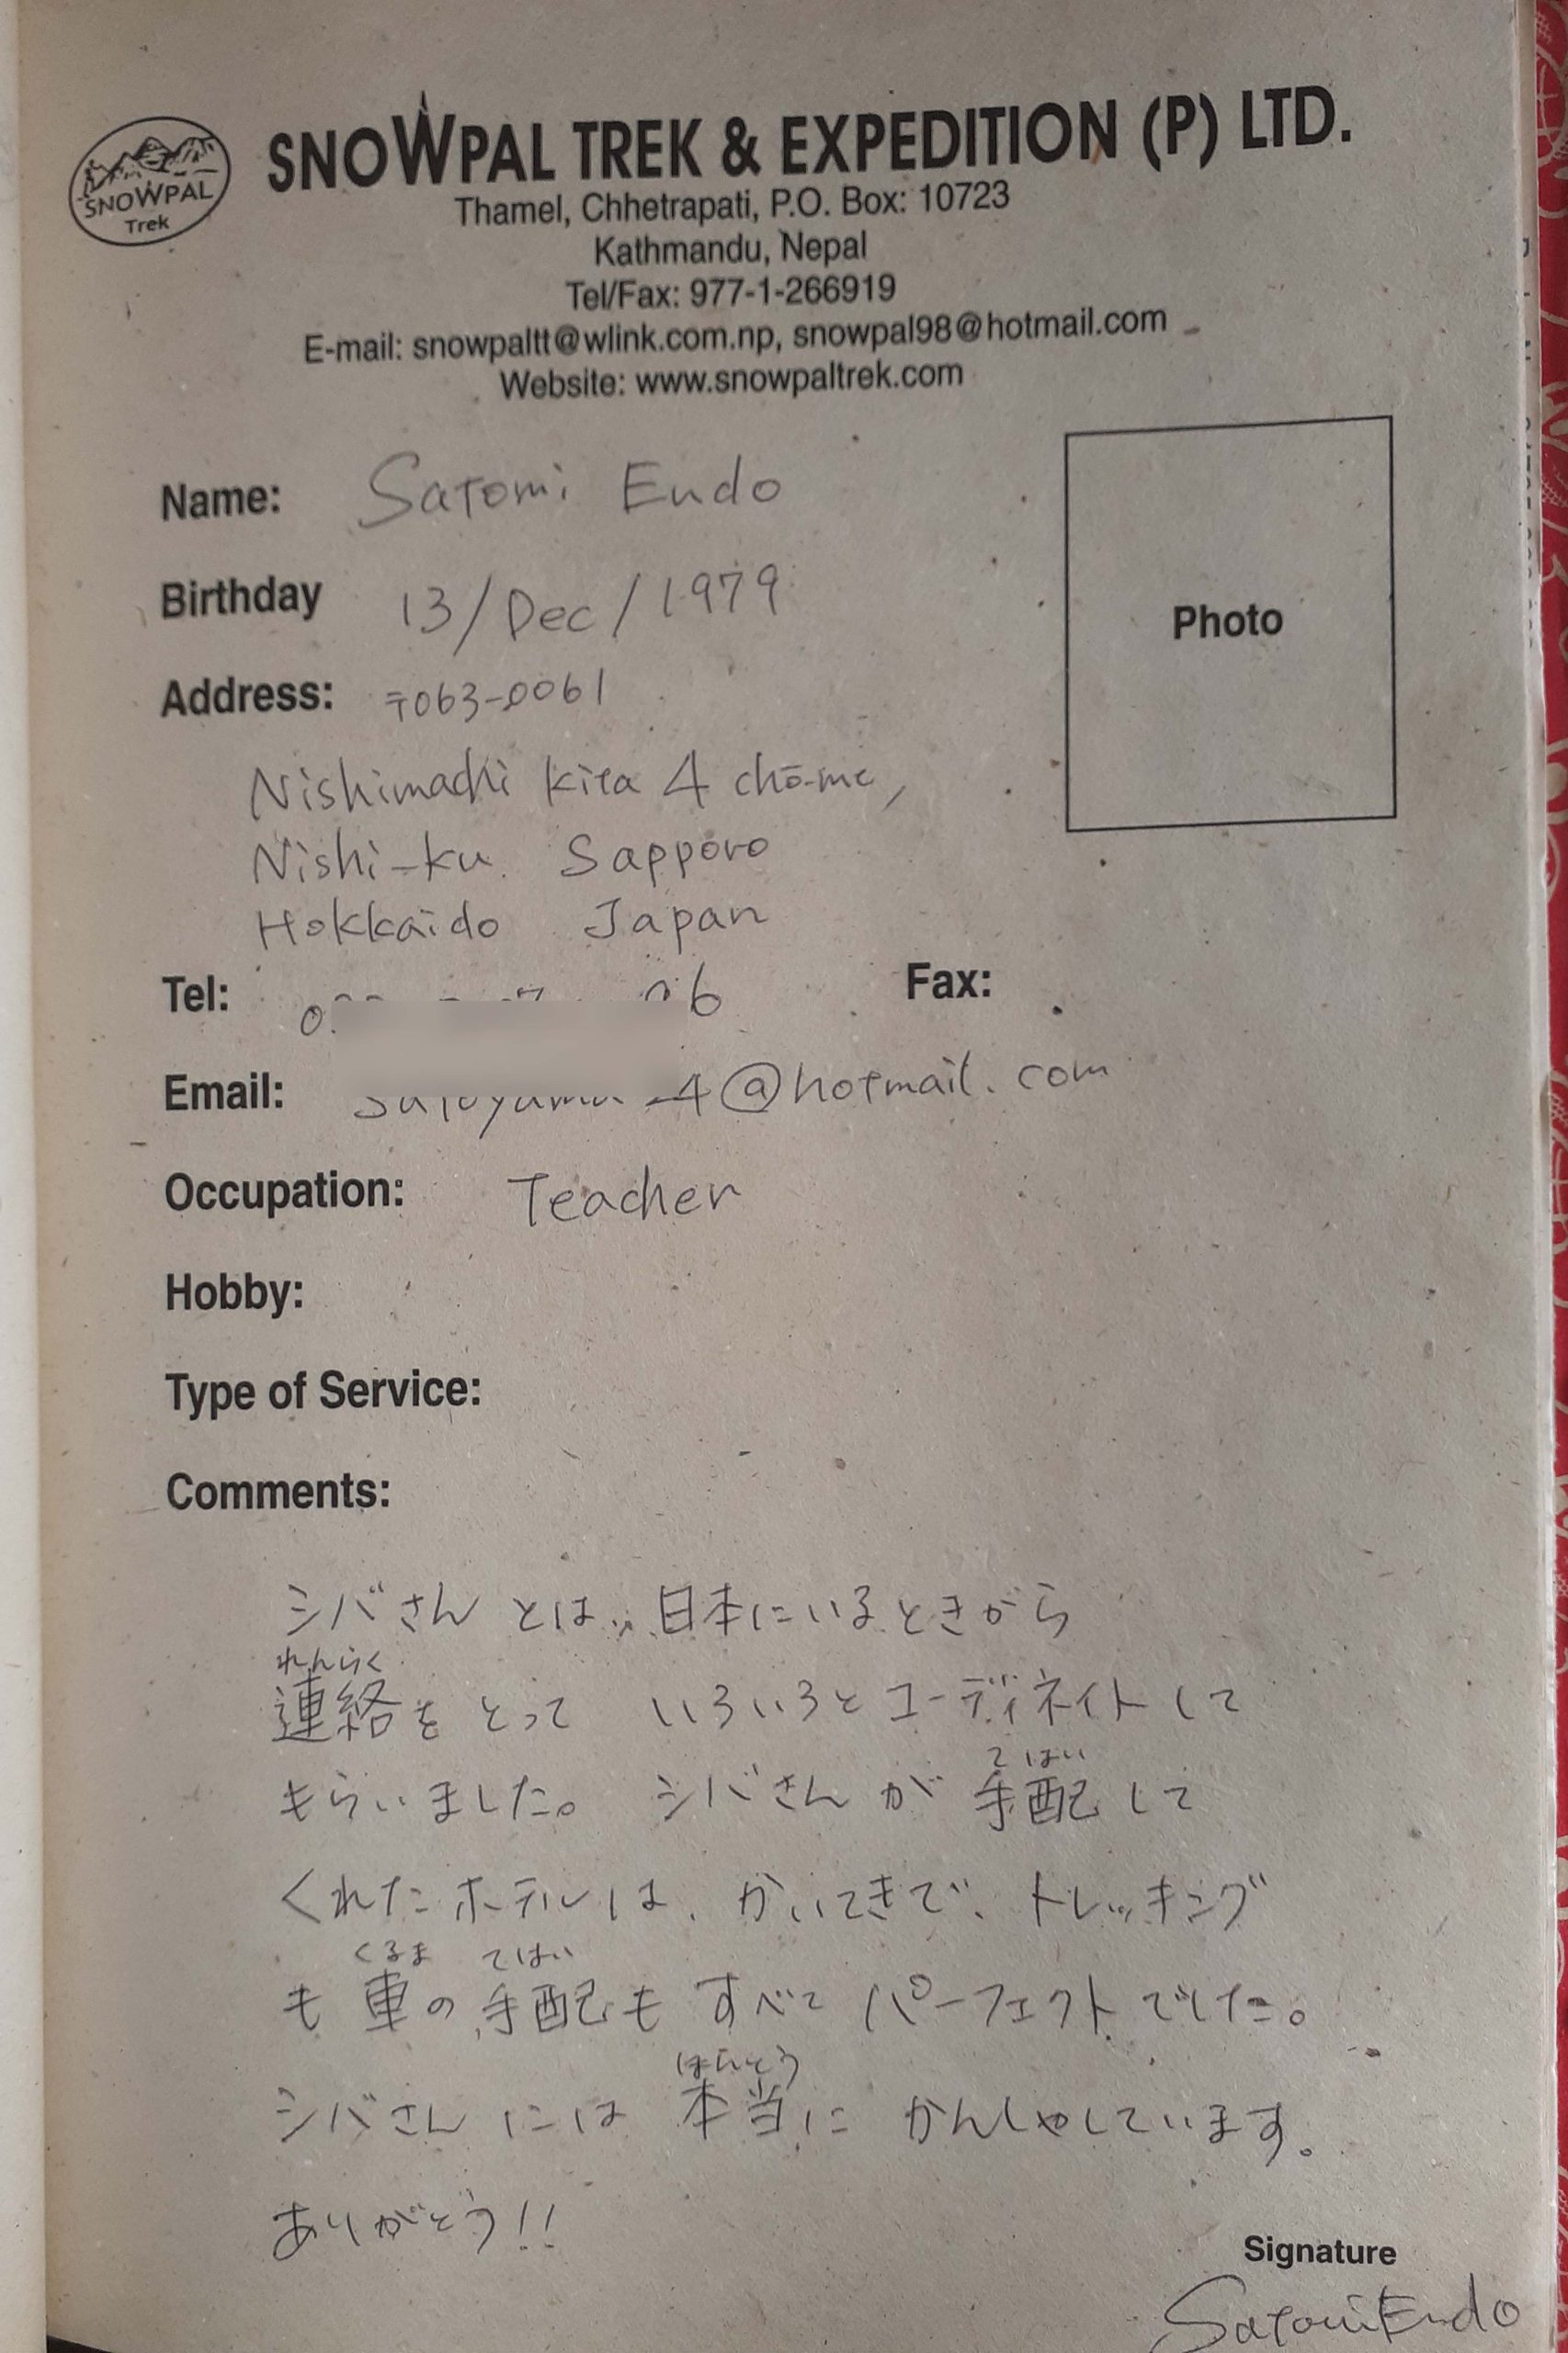 SNOWPAL
Trek
SNOWPAL TREK & EXPEDITION (P) LTD.
Thamel, Chhetrapati, P.O. Box: 10723
Kathmandu, Nepal
Tel/Fax: 977-1-266919
E-mail: snowpaltt@wlink.com.np, snowpal98@hotmail.com
Website: www.snowpaltrek.com
Name: Satomi Endo
Birthday 13/Dec/1979
Photo
Address: 〒063-0061
Nishimachi kita 4 chō-me,
Nishi-ku Sapporo
Hokkaido Japan
Tel:
Fax:
Email: 4@hotmail.com
Occupation: Teacher
Hobby:
Type of Service:
Comments:
シバさんとは、日本にいるときから
れんらく
連絡をとって いろいろとコーディネイトして
てはい
もらいました。 シバさんが手配して
くれたホテルは、かいてきで、トレッキング
くるま てはい
も車の手配もすべてパーフェクトでした。
ほんとう
シバさんには本当にかんしゃしています。
ありがとう!!
Signature
Satomi Endo